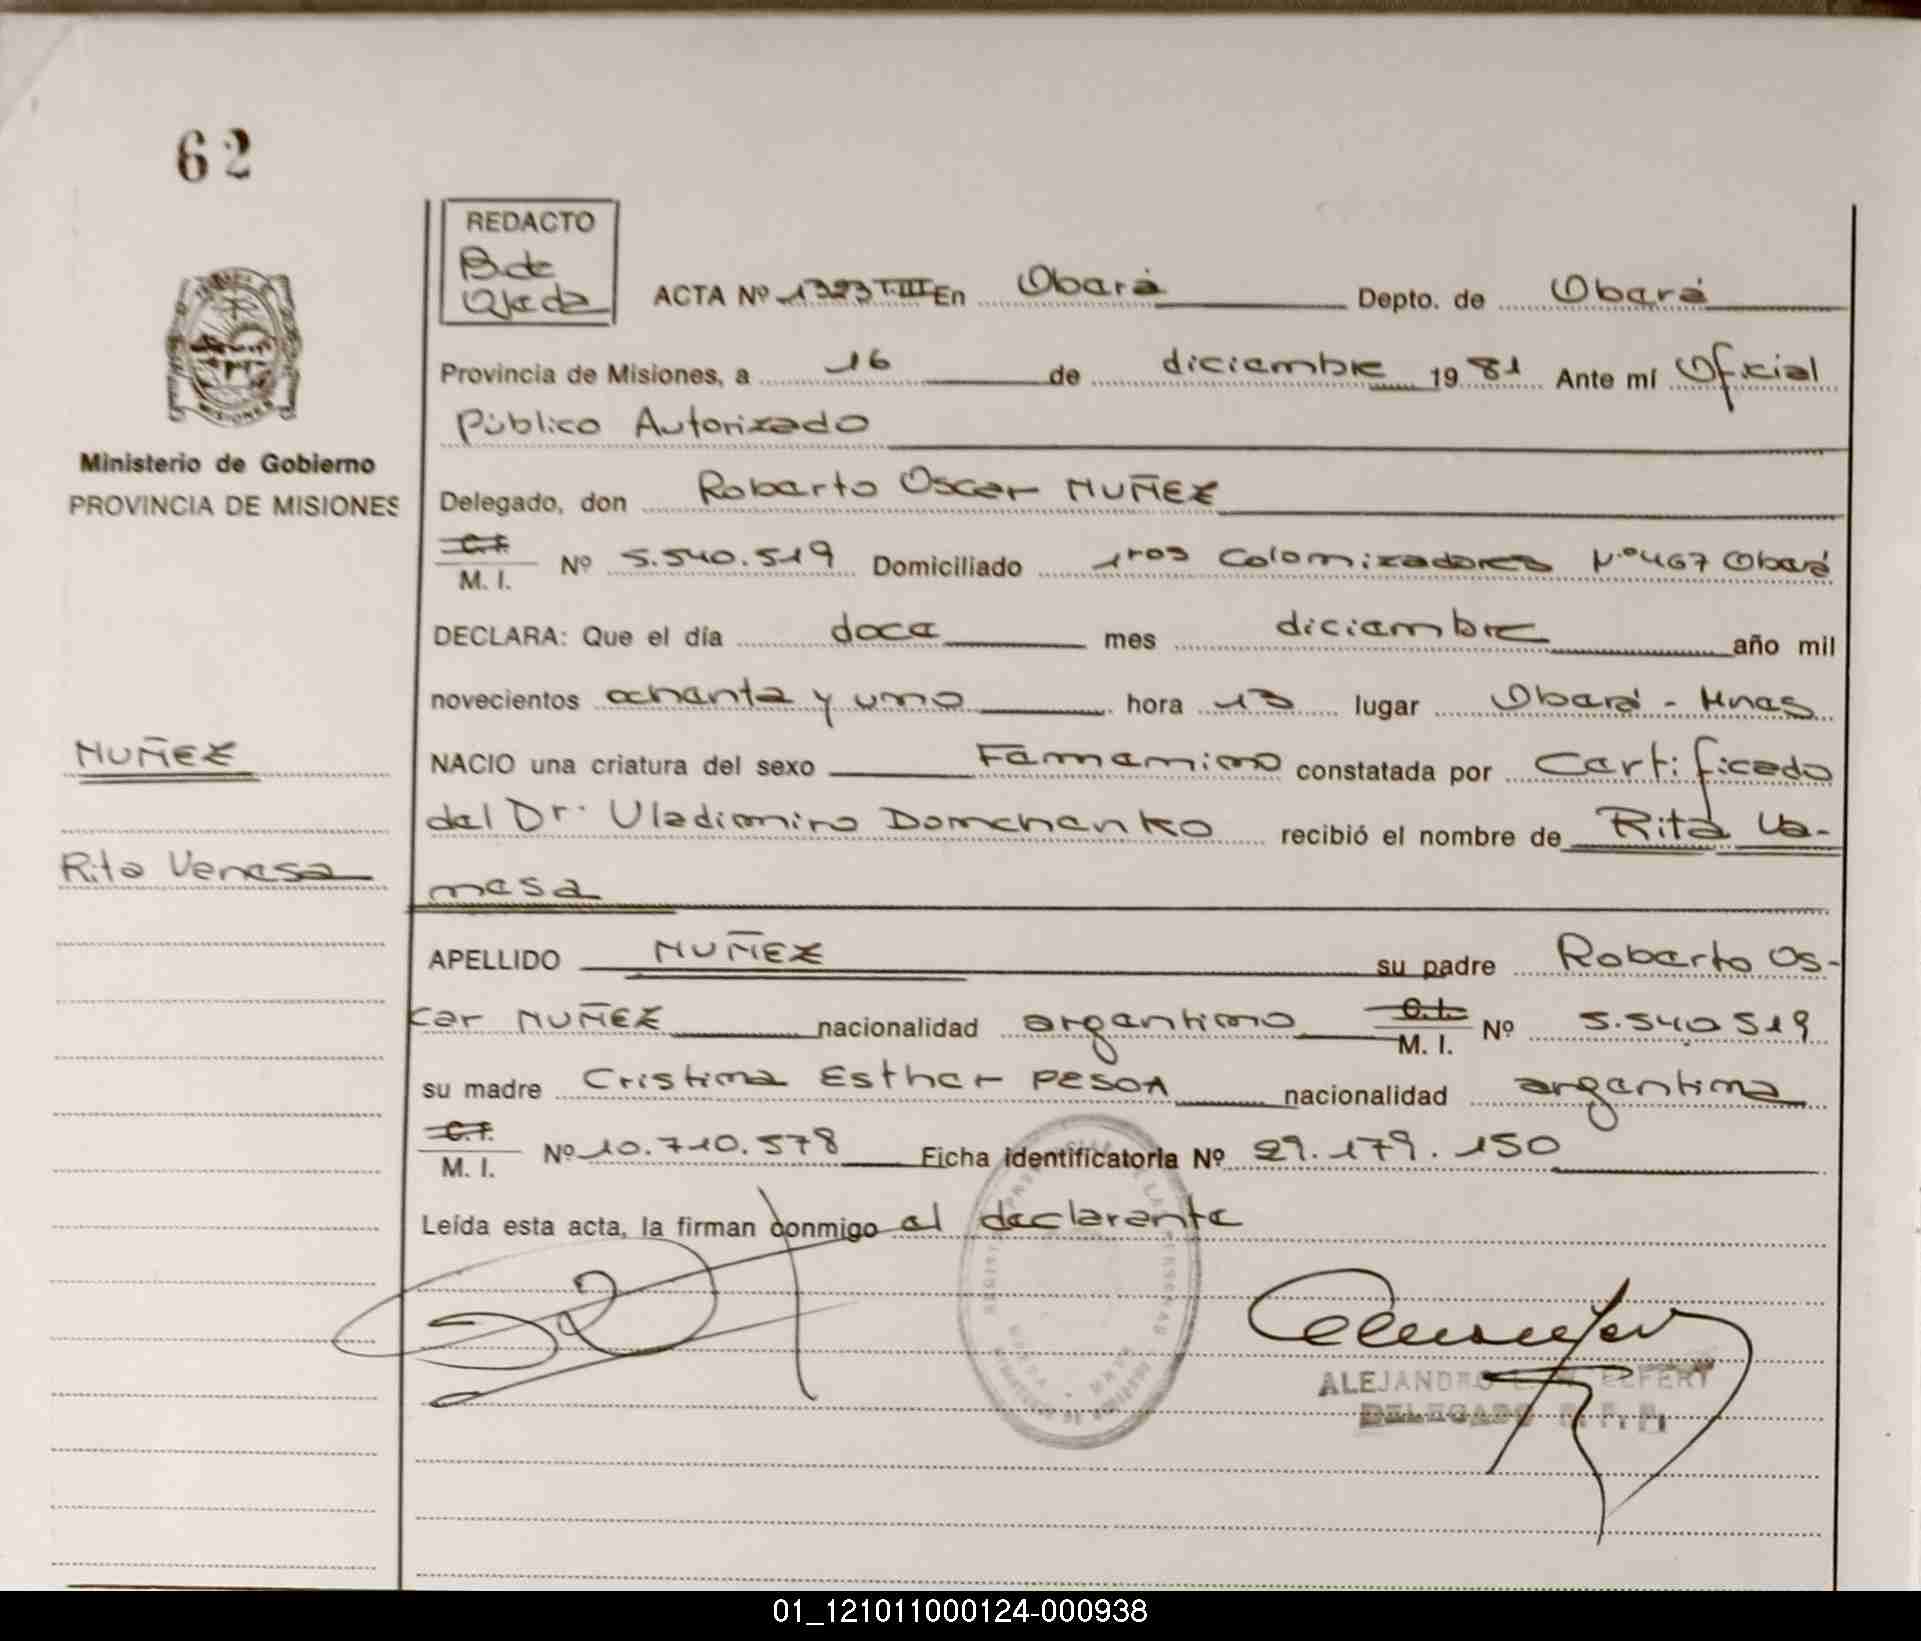 62
REDACTO
B. de
Ojeda
ACTA Nº 1323 T. III En Oberá Depto. de Oberá
Provincia de Misiones, a 16 de diciembre 1981 Ante mí Oficial
Público Autorizado
Ministerio de Gobierno
PROVINCIA DE MISIONES
Delegado, don Roberto Oscar NUÑEZ
C.I.
M. I. Nº 5.540.519 Domiciliado 1ros Colonizadores Nº 467 Oberá
DECLARA: Que el día doce mes diciembre año mil
novecientos ochenta y uno hora 13 lugar Oberá - Mnes
NUÑEZ
NACIO una criatura del sexo Femenino constatada por Certificado
del Dr. Uladimiro Domchenko recibió el nombre de Rita Va-
Rita Vanesa
nesa
APELLIDO NUÑEZ su padre Roberto Os-
car NUÑEZ nacionalidad argentino C.I.
M. I. Nº 5.540 519
su madre Cristina Esther PESOA nacionalidad argentina
C.I.
M. I. Nº 10.710.578 Ficha identificatoria Nº 29.179.150
Leída esta acta, la firman conmigo el declarante
ALEJANDRO
DELEGADO
01_121011000124-000938